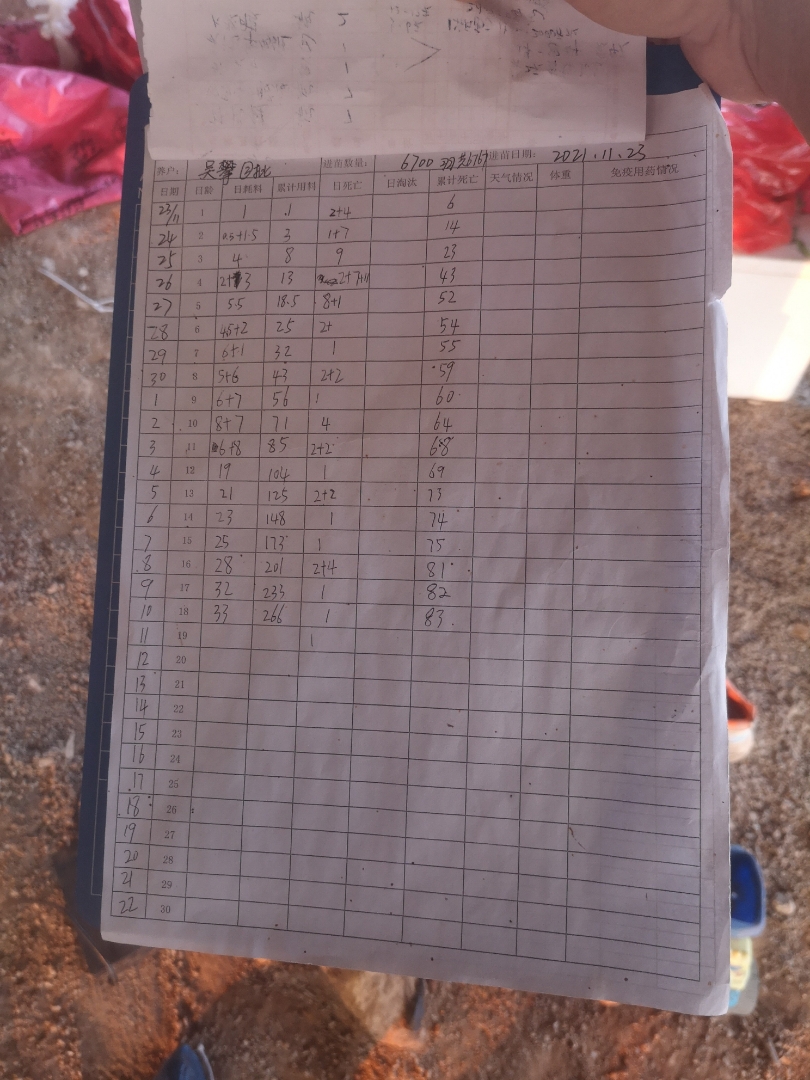 养户： 吴攀 进苗数量： 6700 进苗日期： 2021.11.23
日期 日龄 日耗料 累计用料 日死亡 日淘汰 累计死亡 天气情况 体重 免疫用药情况
23/11 1 1 1 2+4 6
24 2 0.5+1.5 3 1+7 14
25 3 4 8 9 23
26 4 2+3 13 2+7+11 43
27 5 5.5 18.5 8+1 52
28 6 45+2 25 2+ 54
29 7 6+1 32 1 55
30 8 5+6 43 2+2 59
1 9 6+7 56 1 60
2 10 8+7 71 4 64
3 11 6+8 85 2+2 68
4 12 19 104 1 69
5 13 21 125 2+2 73
6 14 23 148 1 74
7 15 25 173 1 75
8 16 28 201 2+4 81
9 17 32 233 1 82
10 18 33 266 1 83
11 19 1
12 20
13 21
14 22
15 23
16 24
17 25
18 26
19 27
20 28
21 29
22 30